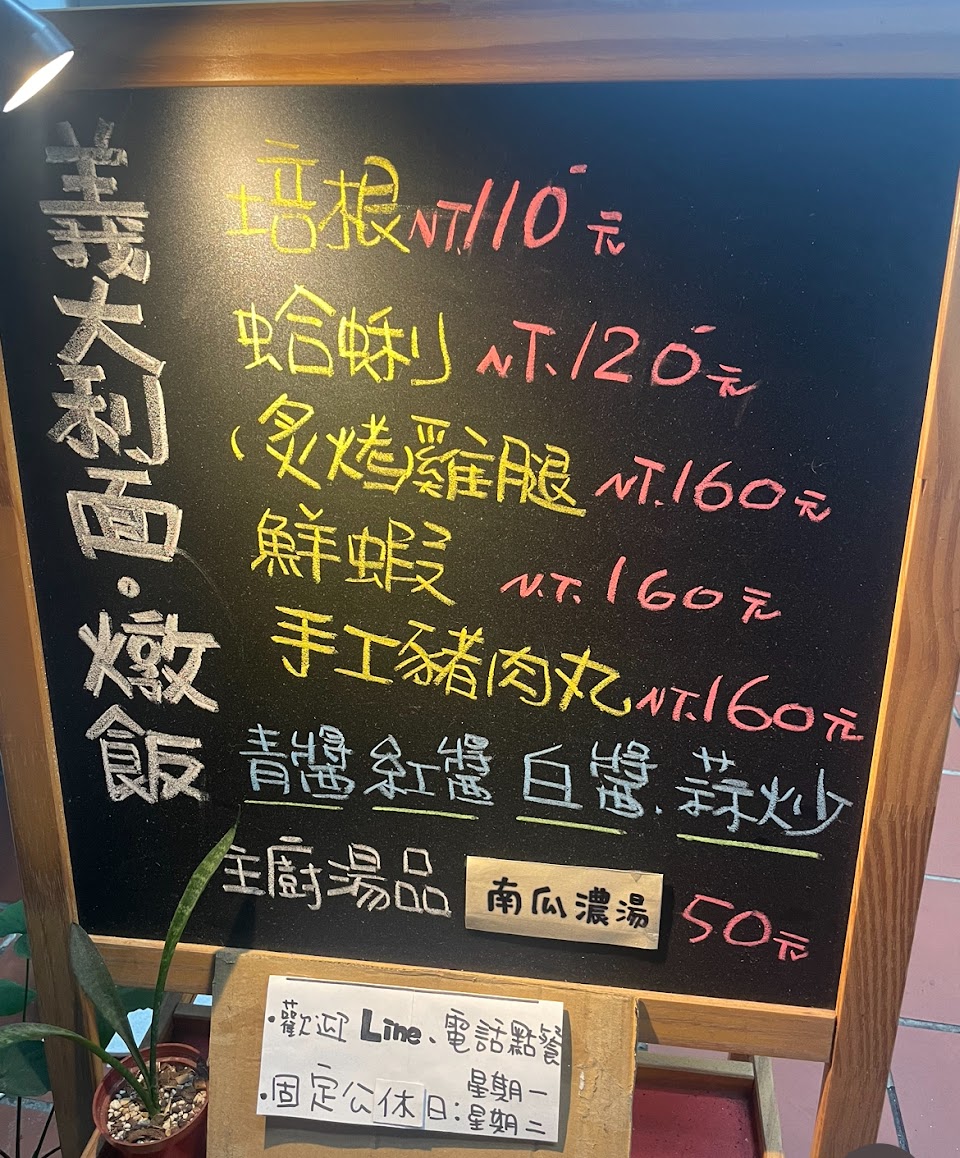 義大利面・燉飯
培根NT.110-元
蛤蜊 NT.120-元
炙烤雞腿 NT.160元
鮮蝦 N.T.160元
手工豬肉丸 NT.160元
青醬 紅醬 白醬、蒜炒
主廚湯品 南瓜濃湯 50元
・歡迎Line、電話點餐
・固定公休日:星期一
星期二